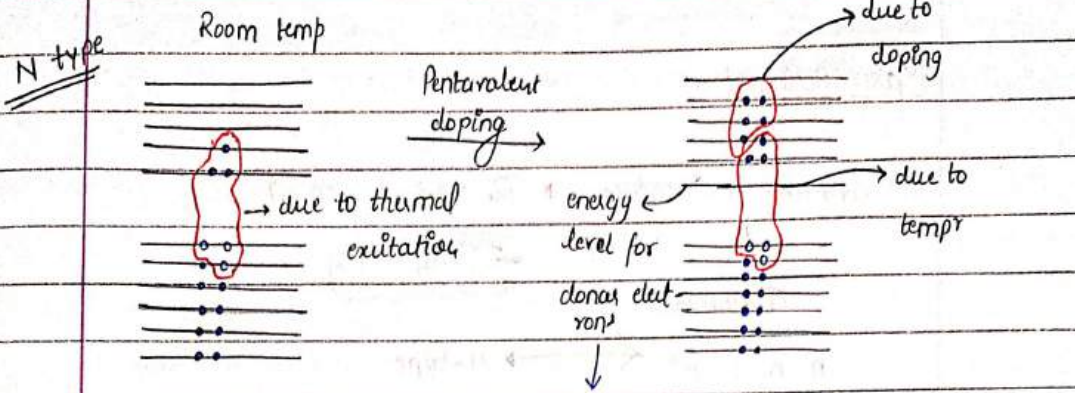 N type
Room temp
Pentavalent
doping
due to
doping
due to thermal
exutation
energy
level for
donar elect
rons
due to
tempr